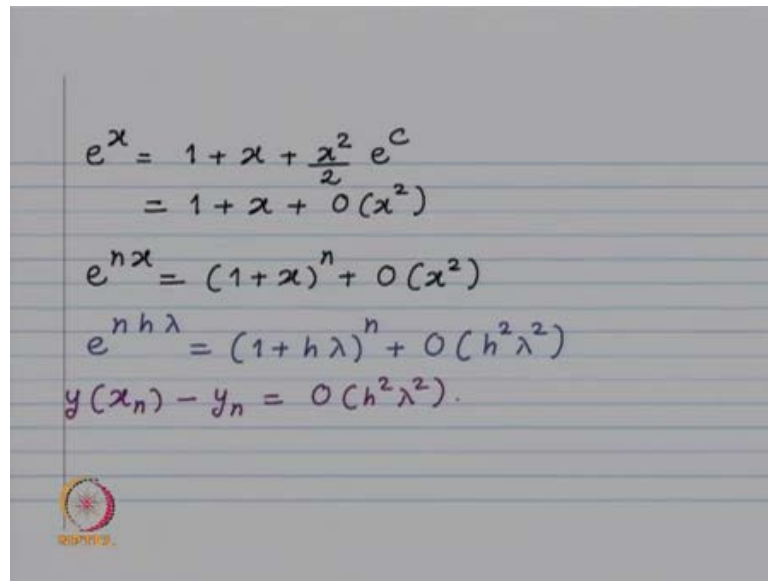 e^x = 1 + x + x^2/2 e^c
= 1 + x + O(x^2)
e^{nx} = (1+x)^n + O(x^2)
e^{nhλ} = (1+hλ)^n + O(h^2λ^2)
y(x_n) - y_n = O(h^2λ^2).